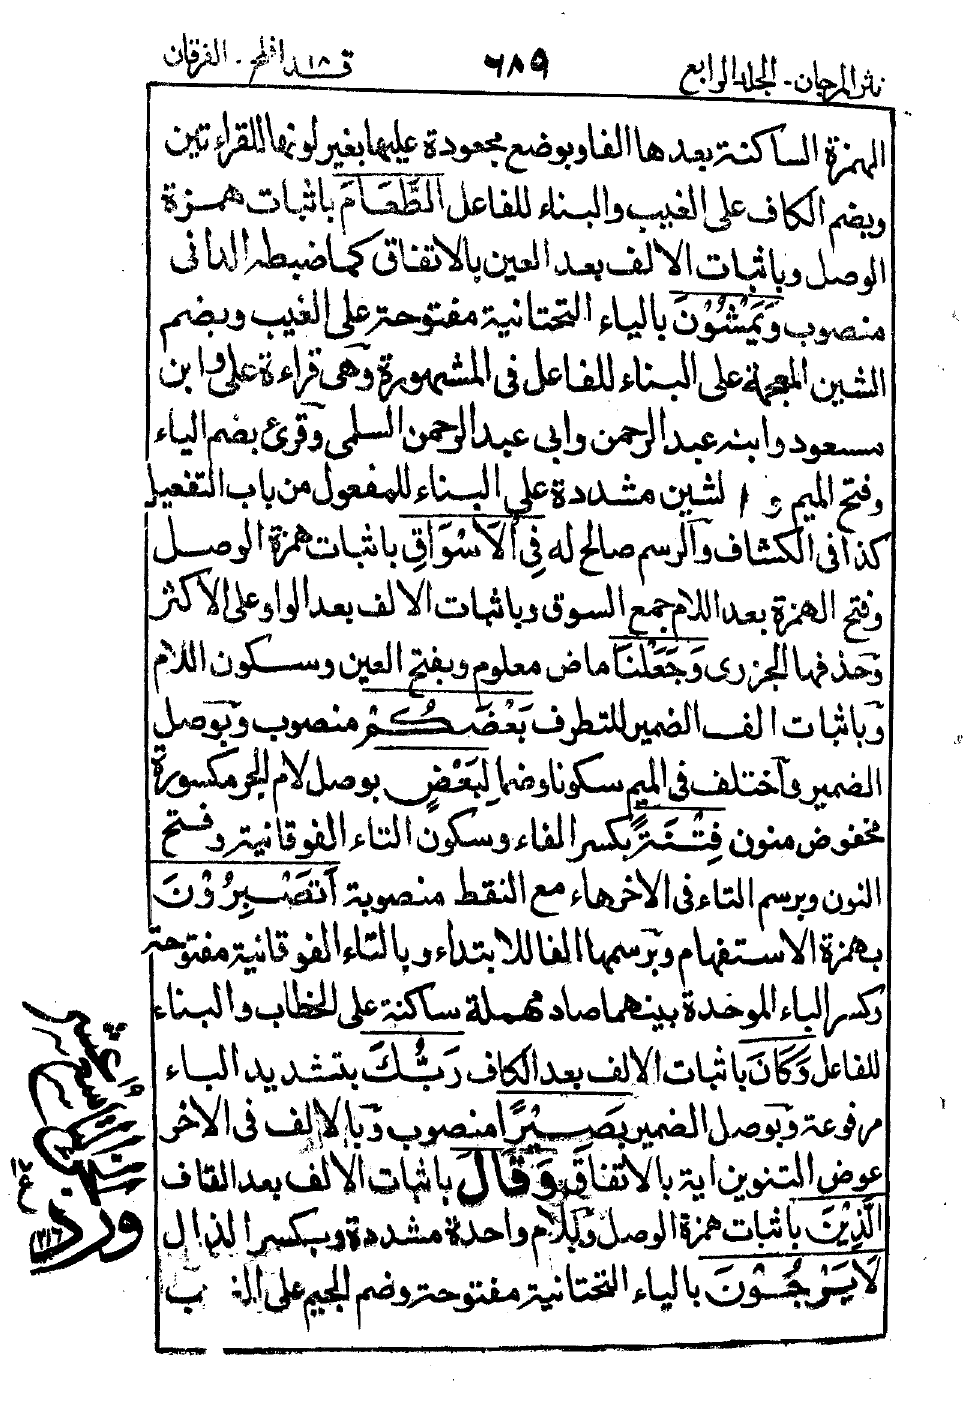 نثر المرجان - الجلد الرابع
٦٨٩
قد افلح ١٨ - الفرقان
الهمزة الساكنة بعدها الفا وبوضع مجعودة عليها بغير لونها للقراءتين
وبضم الكاف على الغيب والبناء للفاعل الطَّعَامَ باثبات همزة
الوصل وباثبات الالف بعد العين بالاتفاق كما ضبطه الدانى
منصوب وَيَمْشُوْنَ بالياء التحتانية مفتوحة على الغيب وبضم
الشين المعجمة على البناء للفاعل فى المشهورة وهى قراءة على وابن
مسعود وابنه عبد الرحمن وابى عبد الرحمن السلمى وقرئ بضم الياء
وفتح الميم و الشين مشددة على البناء للمفعول من باب التفعيل
كذا فى الكشاف والرسم صالح له فِى الْاَسْوَاقِ باثبات همزة الوصل
وفتح الهمزة بعد اللام جمع السوق وباثبات الالف بعد الواو على الاكثر
وحذفها الجزرى وَجَعَلْنَا ماض معلوم وبفتح العين وسكون اللام
وباثبات الف الضمير للتطرف بَعْضَكُمْ منصوب وبوصل
الضمير واختلف فى الميم سكونا وضما لِبَعْضٍ بوصل لام الجر مكسورة
مخفوض منون فِتْنَةً بكسر الفاء وسكون التاء الفوقانية وفتح
النون وبرسم التاء فى الاخر هاء مع النقط منصوبة اَتَصْبِرُوْنَ
بهمزة الاستفهام وبرسمها الفا للابتداء وبالتاء الفوقانية مفتوحة
وكسر الباء الموحدة بينهما صاد مهملة ساكنة على الخطاب والبناء
للفاعل وَكَانَ باثبات الالف بعد الكاف رَبُّكَ بتشديد الباء
مرفوعة وبوصل الضمير بَصِيْرًا منصوب وبالالف فى الاخر
عوض التنوين اية بالاتفاق وَقَالَ باثبات الالف بعد القاف
الَّذِيْنَ باثبات همزة الوصل وبلام واحدة مشددة وبكسر الذال
لَا يَرْجُوْنَ بالياء التحتانية مفتوحة وضم الجيم على